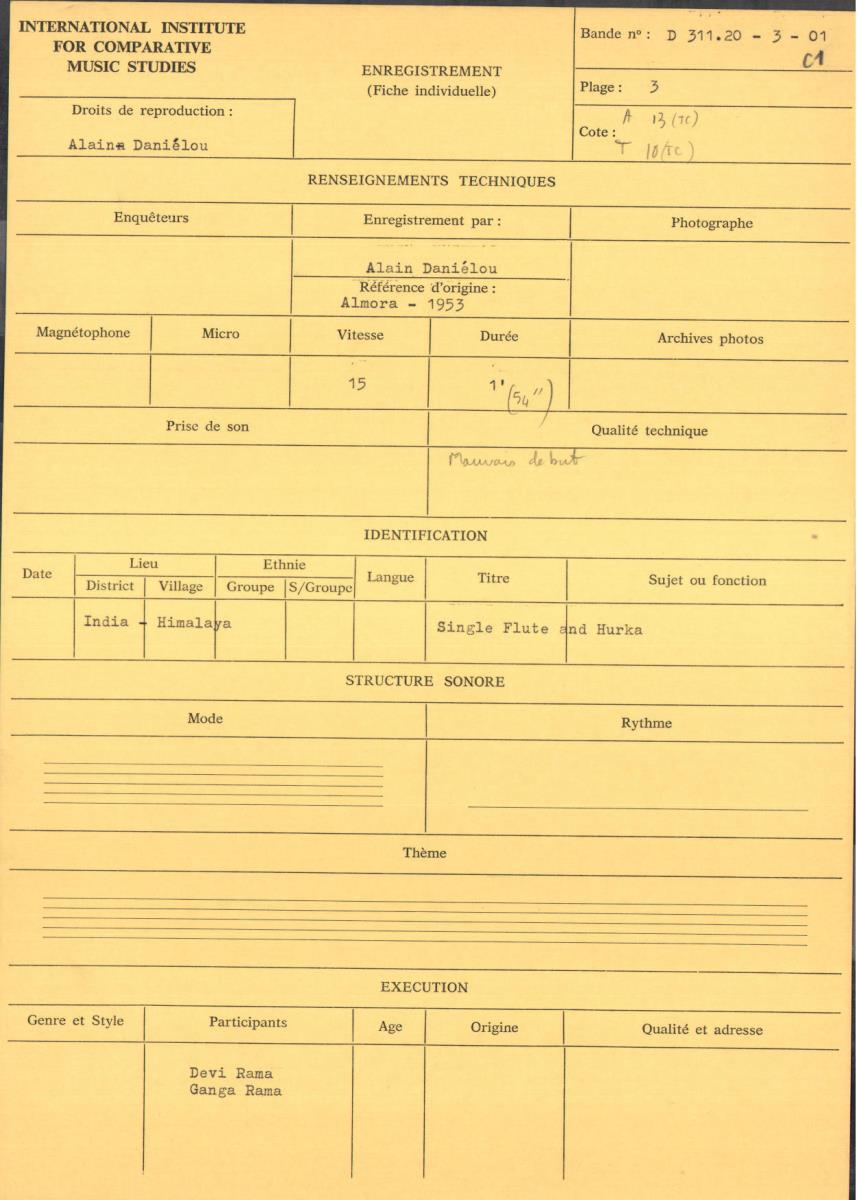 INTERNATIONAL INSTITUTE
FOR COMPARATIVE
MUSIC STUDIES
Droits de reproduction :
Alain Daniélou
ENREGISTREMENT
(Fiche individuelle)
Bande nº : D 311.20 - 3 - 01
C1
Plage : 3
Cote : A 13 (TC)
T 10 (TC)
RENSEIGNEMENTS TECHNIQUES
Enquêteurs
Enregistrement par :
Photographe
Alain Daniélou
Référence d'origine :
Almora - 1953
Magnétophone
Micro
Vitesse
Durée
Archives photos
15
1' (54")
Prise de son
Qualité technique
Mauvais debut
IDENTIFICATION
Date
Lieu
Ethnie
Langue
Titre
Sujet ou fonction
District
Village
Groupe
S/Groupe
India - Himalaya
Single Flute and Hurka
STRUCTURE SONORE
Mode
Rythme
Thème
EXECUTION
Genre et Style
Participants
Age
Origine
Qualité et adresse
Devi Rama
Ganga Rama